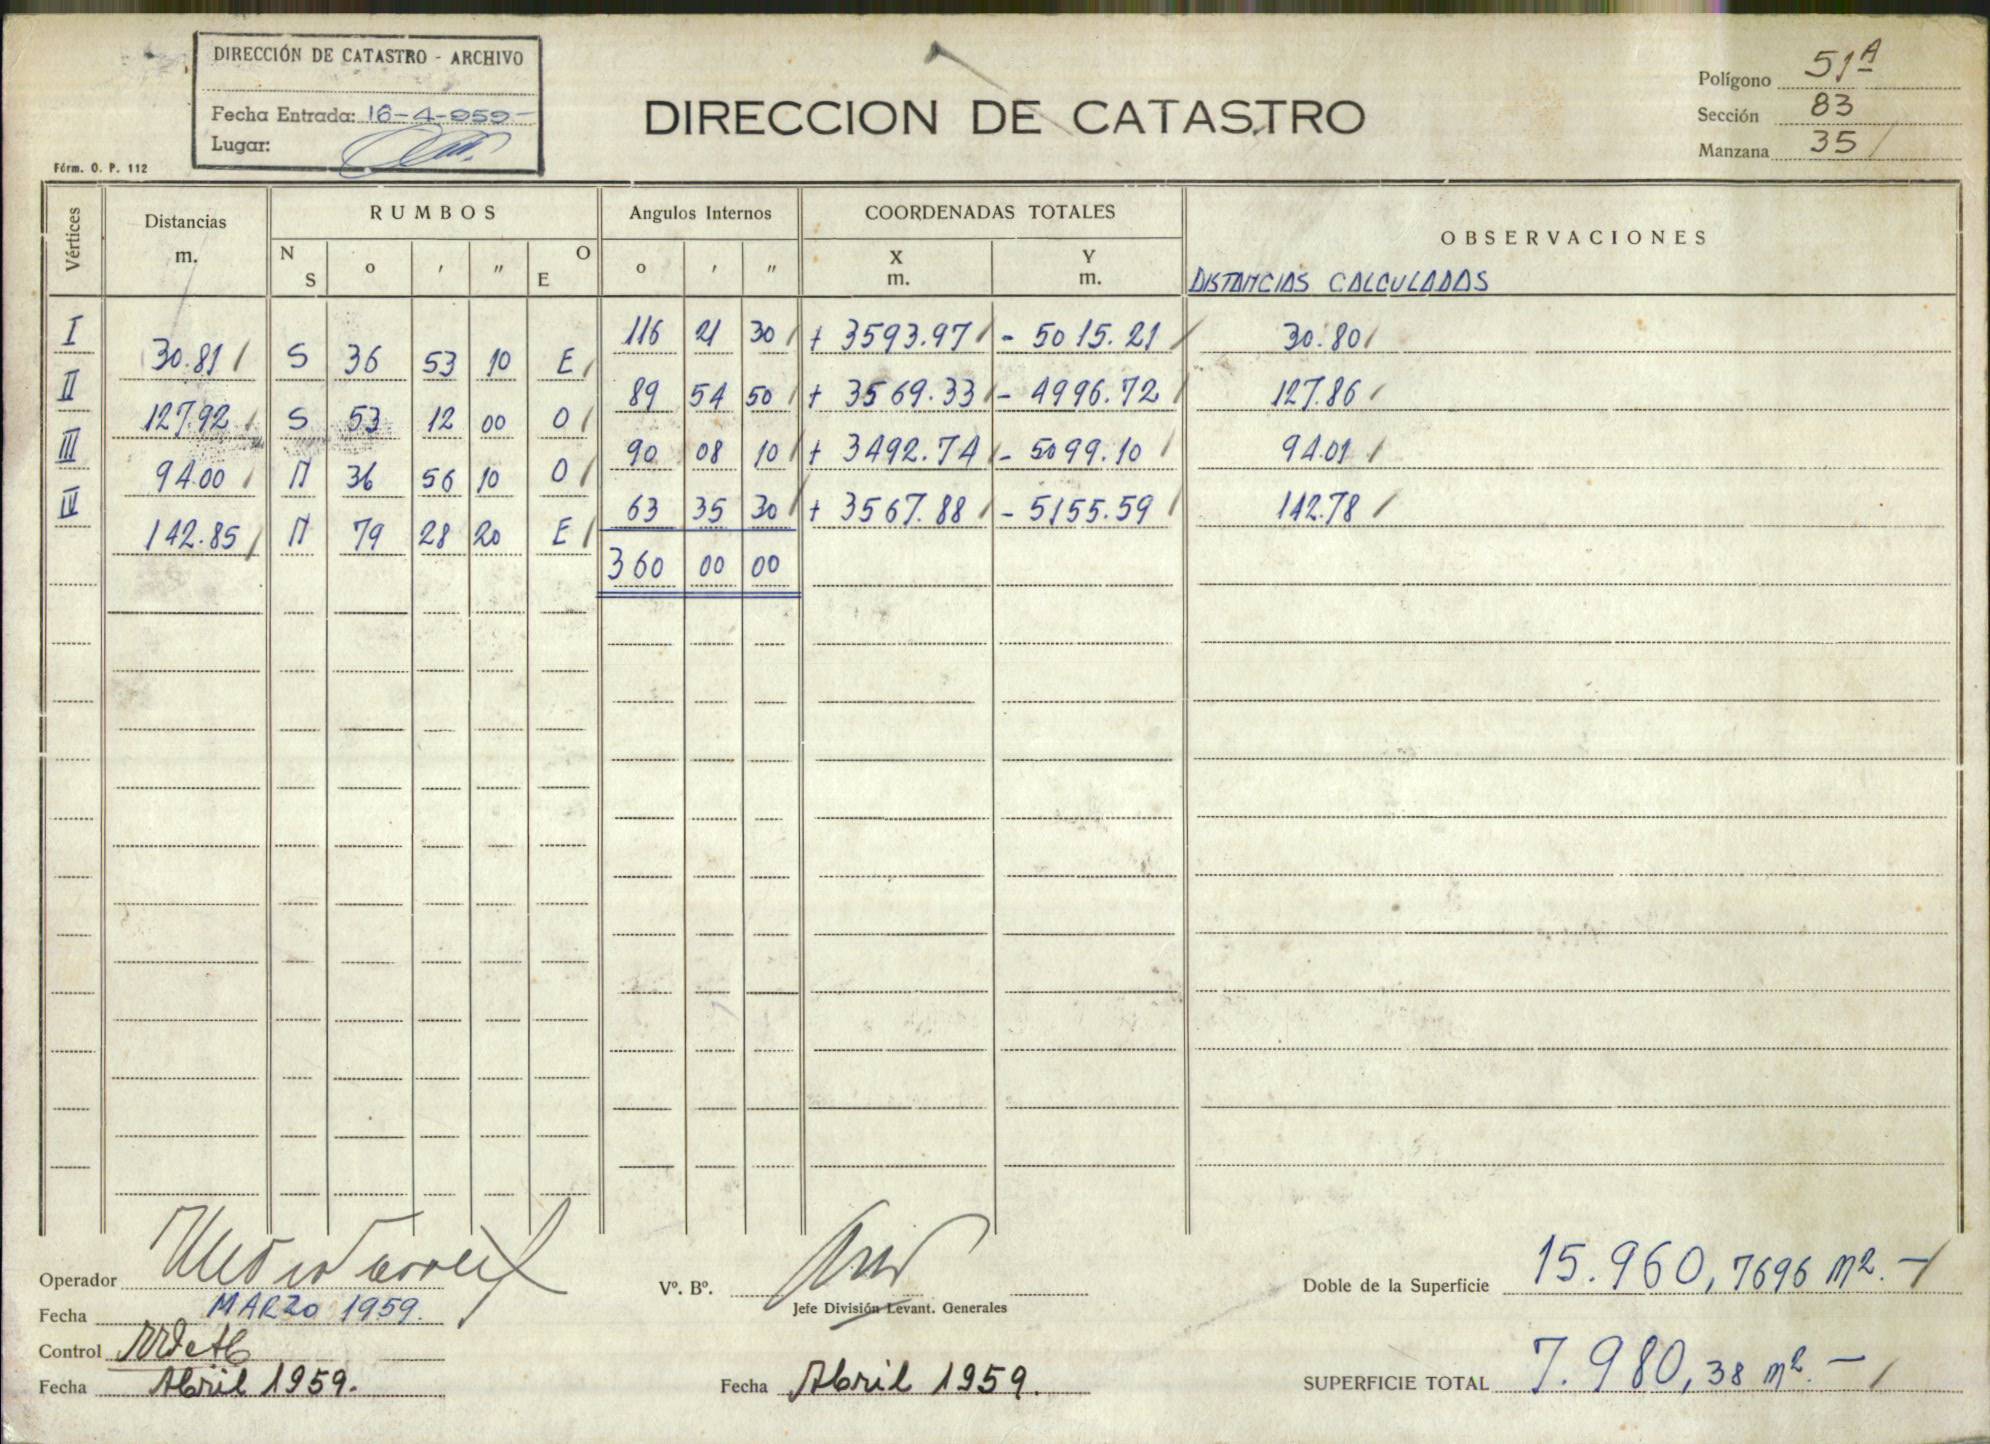 DIRECCIÓN DE CATASTRO - ARCHIVO
Fecha Entrada: 16-4-959-
Lugar:
Fórm. O. P. 112
DIRECCION DE CATASTRO
Polígono 51A
Sección 83
Manzana 35
Vértices Distancias m. RUMBOS Angulos Internos COORDENADAS TOTALES OBSERVACIONES
N S o ' " O E o ' " X m. Y m. DISTANCIAS CALCULADAS
I 116 21 30 + 3593.97 - 5015.21 30.80
30.81 S 36 53 10 E
II 89 54 50 + 3569.33 - 4996.72 127.86
127.92 S 53 12 00 O
III 90 08 10 + 3492.74 - 5099.10 94.01
94.00 N 36 56 10 O
IV 63 35 30 + 3567.88 - 5155.59 142.78
142.85 N 79 28 20 E
360 00 00
Operador
Fecha MARZO 1959.
Control
Fecha Abril 1959.
Vº. Bº.
Jefe División Levant. Generales
Fecha Abril 1959.
Doble de la Superficie 15.960,7696 m2.-
SUPERFICIE TOTAL 7.980,38 m2.-